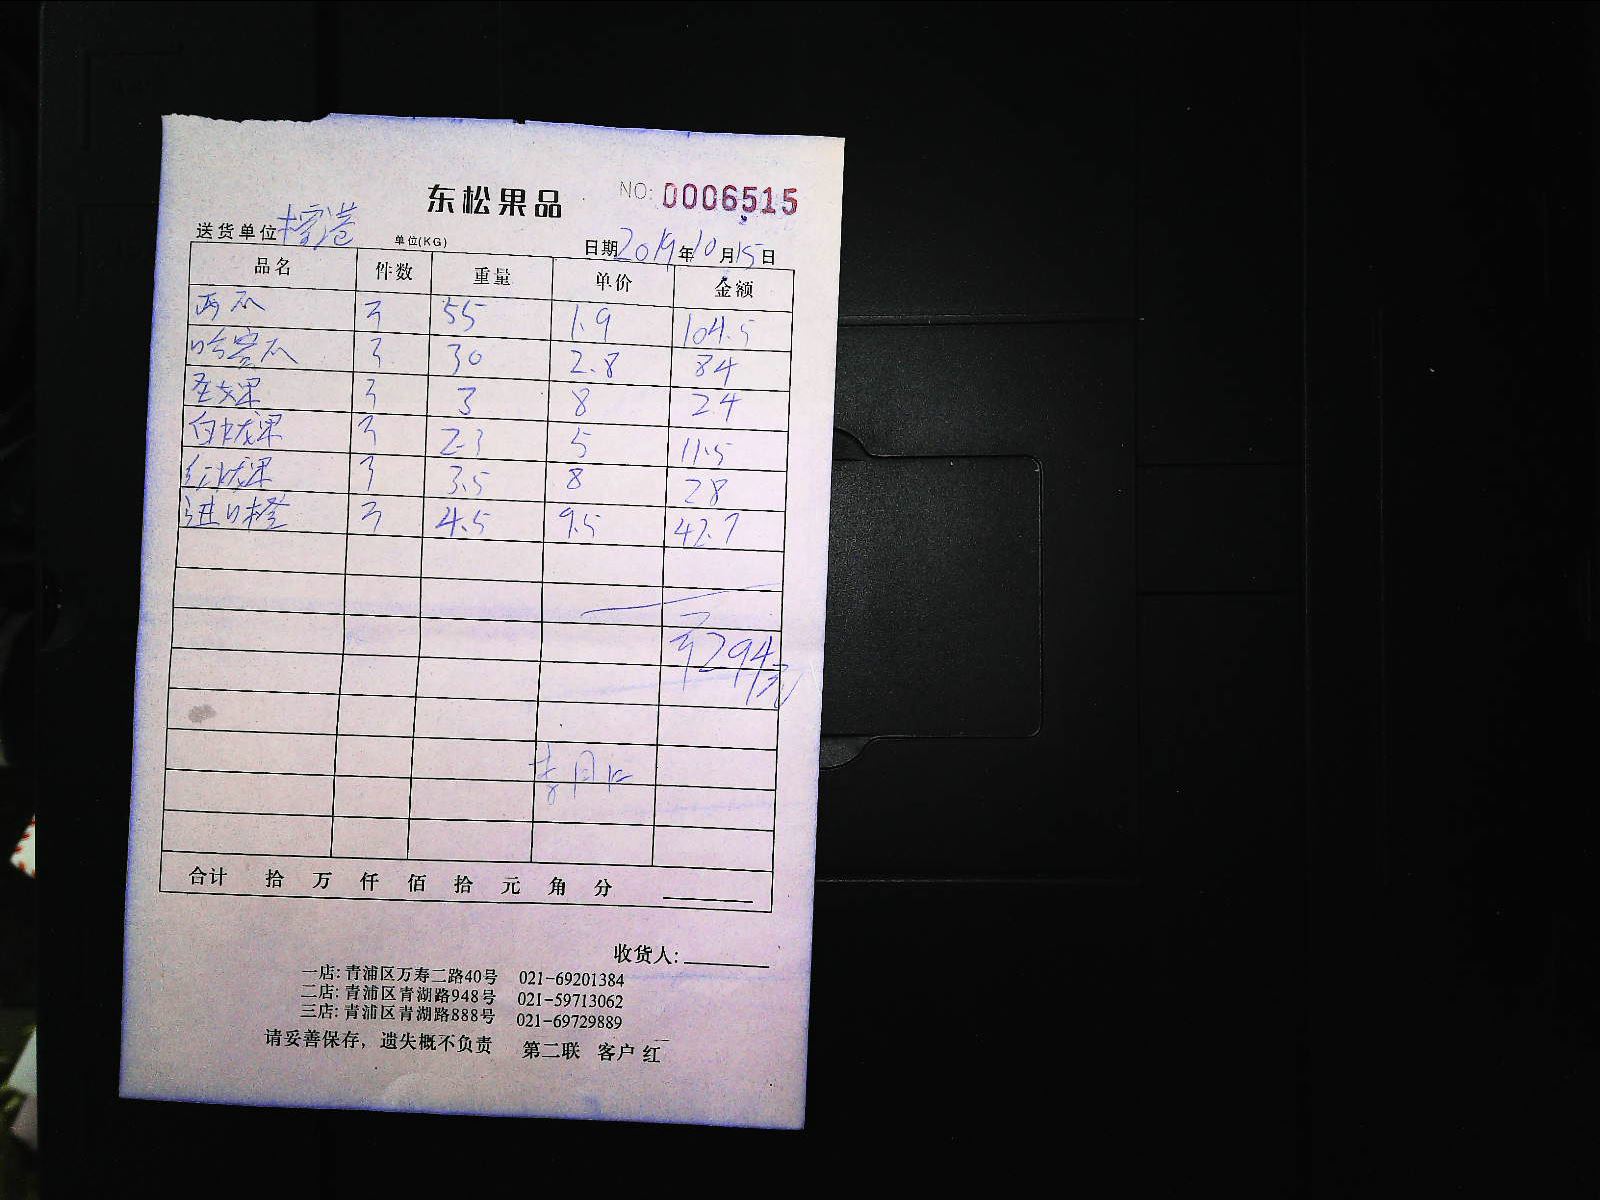 东松果品 NO: 0006515
送货单位 单位(KG) 日期2019年10月15日
品名 件数 重量 单价 金额
西瓜 3 55 1.9 104.5
哈密瓜 3 30 2.8 84
圣女果 3 3 8 24
白火龙果 3 2.3 5 11.5
红火龙果 3 3.5 8 28
进口橙 3 4.5 9.5 42.7
294元
合计 拾 万 仟 佰 拾 元 角 分
收货人:
一店: 青浦区万寿二路40号 021-69201384
二店: 青浦区青湖路948号 021-59713062
三店: 青浦区青湖路888号 021-69729889
请妥善保存，遗失概不负责 第二联 客户 红